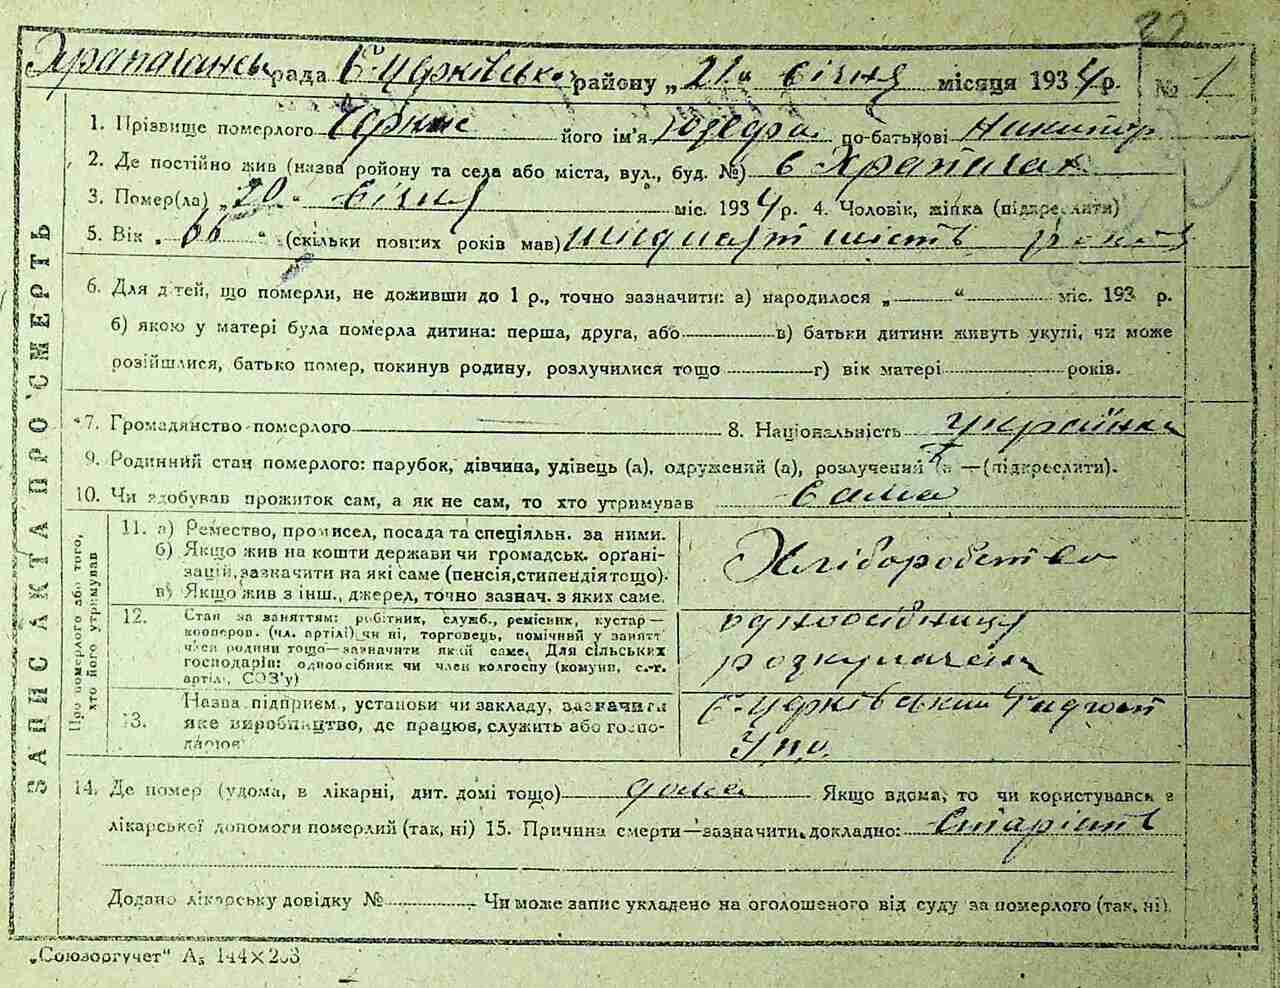 32
Храпачанськ рада Б-Церківськ району „21" січня місяця 1934 р. № 1
1. Прізвище померлого його ім'я по-батькові Никифор
2. Де постійно жив (назва ройону та села або міста, вул., буд. №) в Храпачах
3. Помер(ла) „20" січня міс. 1934 р. 4. Чоловік, жінка (підкреслити)
5. Вік „66" (скільки повних років мав) шісдесят шість років
6. Для дітей, що померли, не доживши до 1 р., точно зазначити: а) народилося „ “ міс. 193 р.
б) якою у матері була померла дитина: перша, друга, або в) батьки дитини живуть укупі, чи може
розійшлися, батько помер, покинув родину, розлучилися тощо г) вік матері років.
7. Громадянство померлого 8. Національність українка
9. Родинний стан померлого: парубок, дівчина, удівець (а), одружений (а), розлучений а —(підкреслити).
10. Чи здобував прожиток сам, а як не сам, то хто утримував сама
ЗАПИС АКТА ПРО СМЕРТЬ
Про померлого або того, хто його утримував
11. а) Ремество, промисел, посада та спеціяльн. за ними.
б) Якщо жив на кошти держави чи громадськ. орґані-
зацій, зазначити на які саме (пенсія, стипендія тощо).
в) Якщо жив з інш., джерел, точно зазнач. з яких саме.
Хліборобство
12. Стан за заняттям: робітник, служб., ремісник, кустар—
кооперов. (чл. артілі) чи ні, торговець, помічний у занятті
член родини тощо—зазначити який саме. Для сільських
господарів: одноосібник чи член колгоспу (комуни, с.-г.
артілі, СОЗ'у)
одноосібниця
розкуркулена
13. Назва підприєм., установи чи закладу, зазначити
яке виробництво, де працює, служить або госпо-
дарює
Б-Церківський
14. Де помер (удома, в лікарні, дит. домі тощо) дома Якщо вдома, то чи користувався з
лікарської допомоги померлий (так, ні) 15. Причина смерти—зазначити докладно: Старість
Додано лікарську довідку № Чи може запис укладено на оголошеного від суду за померлого (так, ні).
„Союзоргучет" А5 144×203